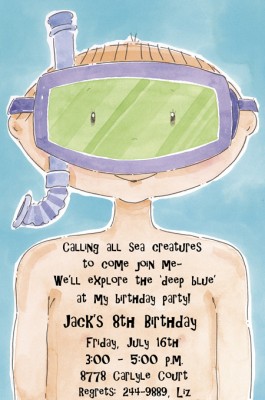 Calling all sea creatures
to come join me-
We'll explore the 'deep blue'
at my birthday party!
Jack's 8th Birthday
Friday, July 16th
3:00 - 5:00 p.m.
8778 Carlyle Court
Regrets: 244-9889, Liz